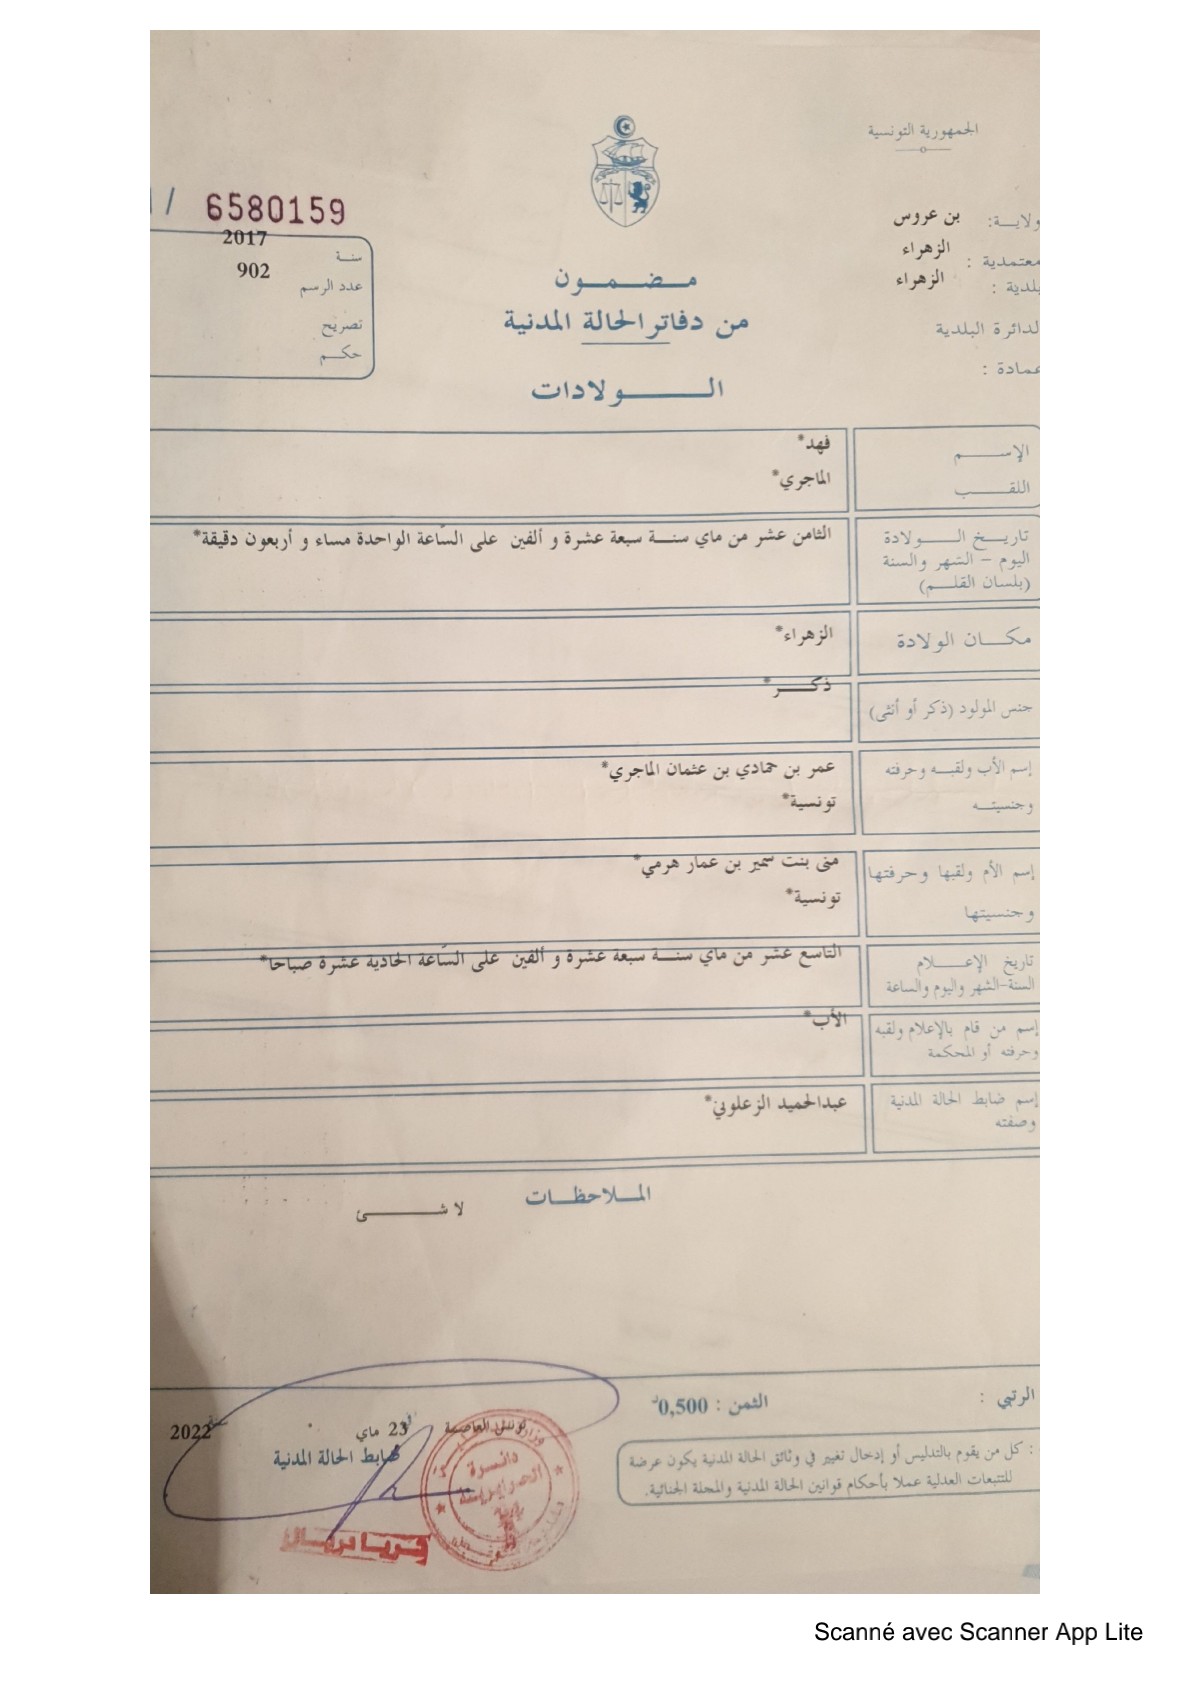 الجمهورية التونسية
ولاية: بن عروس
معتمدية : الزهراء
بلدية : الزهراء
الدائرة البلدية
عمادة :
/ 6580159
سنة 2017
عدد الرسم 902
تصريح
حكم
مضمون
من دفاتر الحالة المدنية
الولادات
الإسم فهد*
اللقب الماجري*
تاريخ الولادة الثامن عشر من ماي سنة سبعة عشرة و ألفين على السّاعة الواحدة مساء و أربعون دقيقة*
اليوم – الشهر والسنة
(بلسان القلم)
مكان الولادة الزهراء*
جنس المولود (ذكر أو أنثى) ذكر*
إسم الأب ولقبه وحرفته عمر بن حمادي بن عثمان الماجري*
وجنسيته تونسية*
إسم الأم ولقبها وحرفتها منى بنت سمير بن عمار هرمي*
وجنسيتها تونسية*
تاريخ الإعلام التاسع عشر من ماي سنة سبعة عشرة و ألفين على السّاعة الحادية عشرة صباحا*
السنة-الشهر واليوم والساعة
إسم من قام بالإعلام ولقبه الأب*
وحرفته أو المحكمة
إسم ضابط الحالة المدنية عبدالحميد الزعلوني*
وصفته
الملاحظات
لا شئ
الرتبي :
الثمن : 0,500د
تونس العاصمة في 23 ماي سنة 2022
ضابط الحالة المدنية
: كل من يقوم بالتدليس أو إدخال تغيير في وثائق الحالة المدنية يكون عرضة
للتتبعات العدلية عملا بأحكام قوانين الحالة المدنية والمجلة الجنائية.
دائرة
Scanné avec Scanner App Lite